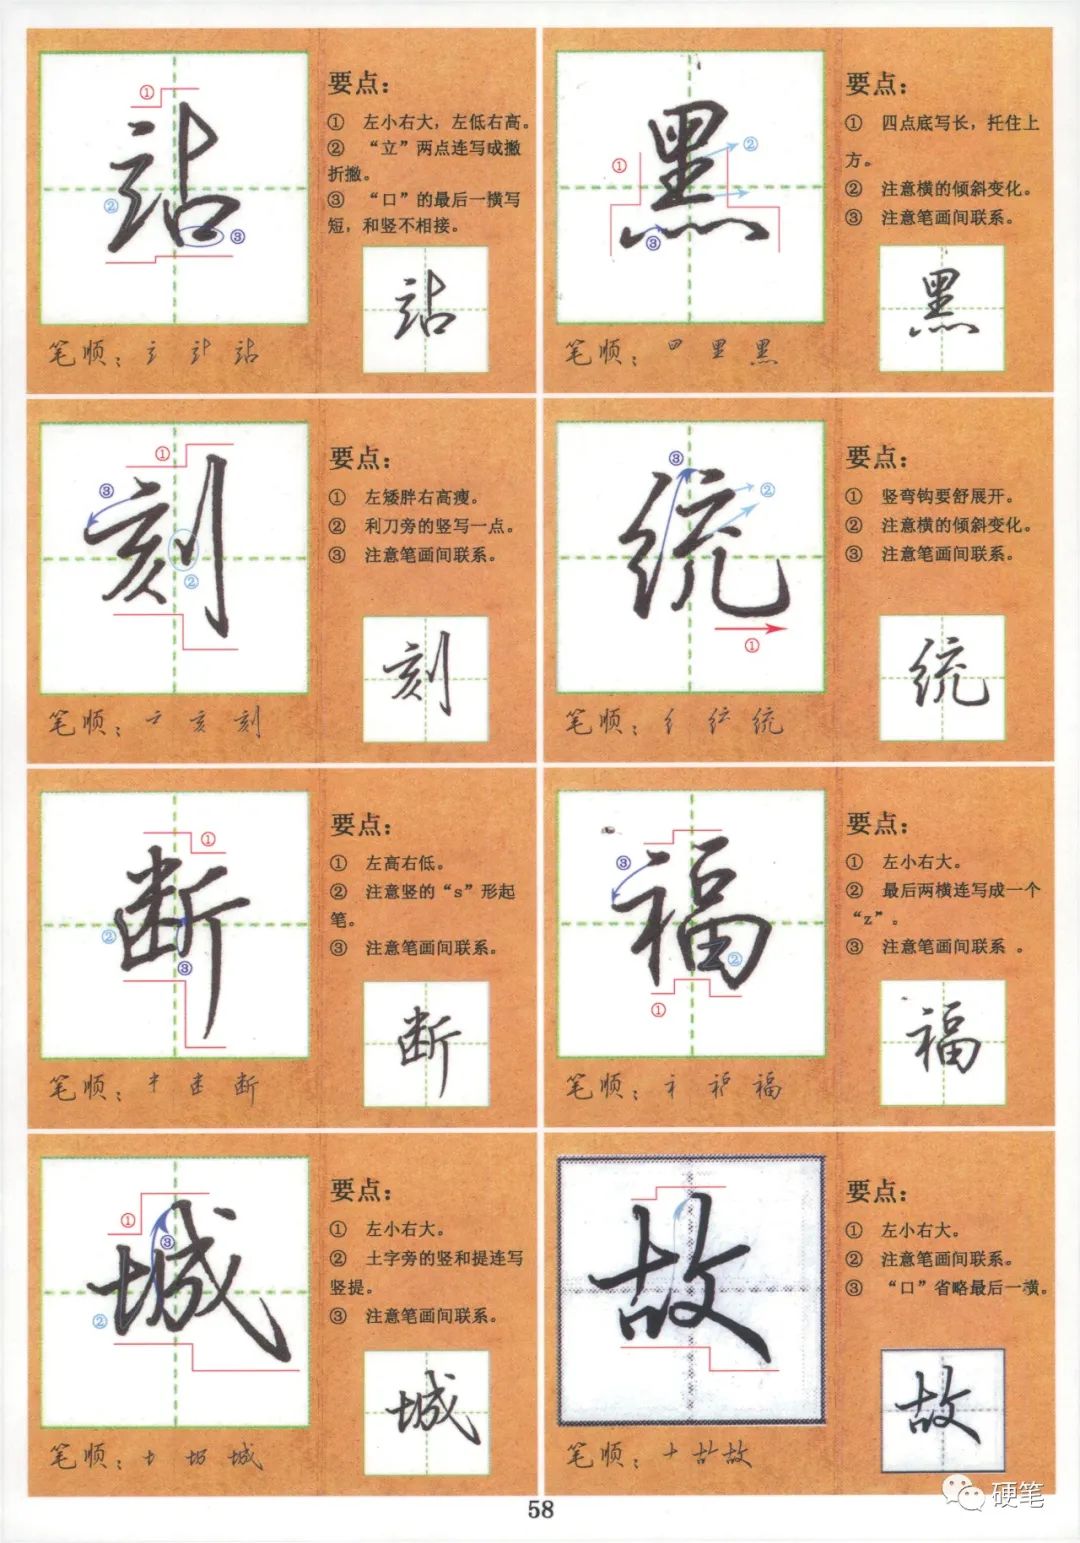 站
①
②
③
要点：
① 左小右大，左低右高。
② “立”两点连写成撇
折撇。
③ “口”的最后一横写
短，和竖不相接。
站
笔顺：站
黑
①
②
③
要点：
① 四点底写长，托住上
方。
② 注意横的倾斜变化。
③ 注意笔画间联系。
黑
笔顺：黑
刻
①
②
③
要点：
① 左矮胖右高瘦。
② 利刀旁的竖写一点。
③ 注意笔画间联系。
刻
笔顺：亠 亥 刻
统
①
②
③
要点：
① 竖弯钩要舒展开。
② 注意横的倾斜变化。
③ 注意笔画间联系。
统
笔顺：纟 统
断
①
②
③
要点：
① 左高右低。
② 注意竖的“s”形起
笔。
③ 注意笔画间联系。
断
笔顺：断
福
①
②
③
①
要点：
① 左小右大。
② 最后两横连写成一个
“z”。
③ 注意笔画间联系 。
福
笔顺：礻 福
城
①
②
③
要点：
① 左小右大。
② 土字旁的竖和提连写
竖提。
③ 注意笔画间联系。
城
笔顺：城
故
要点：
① 左小右大。
② 注意笔画间联系。
③ “口”省略最后一横。
故
笔顺：十 故
58
硬笔